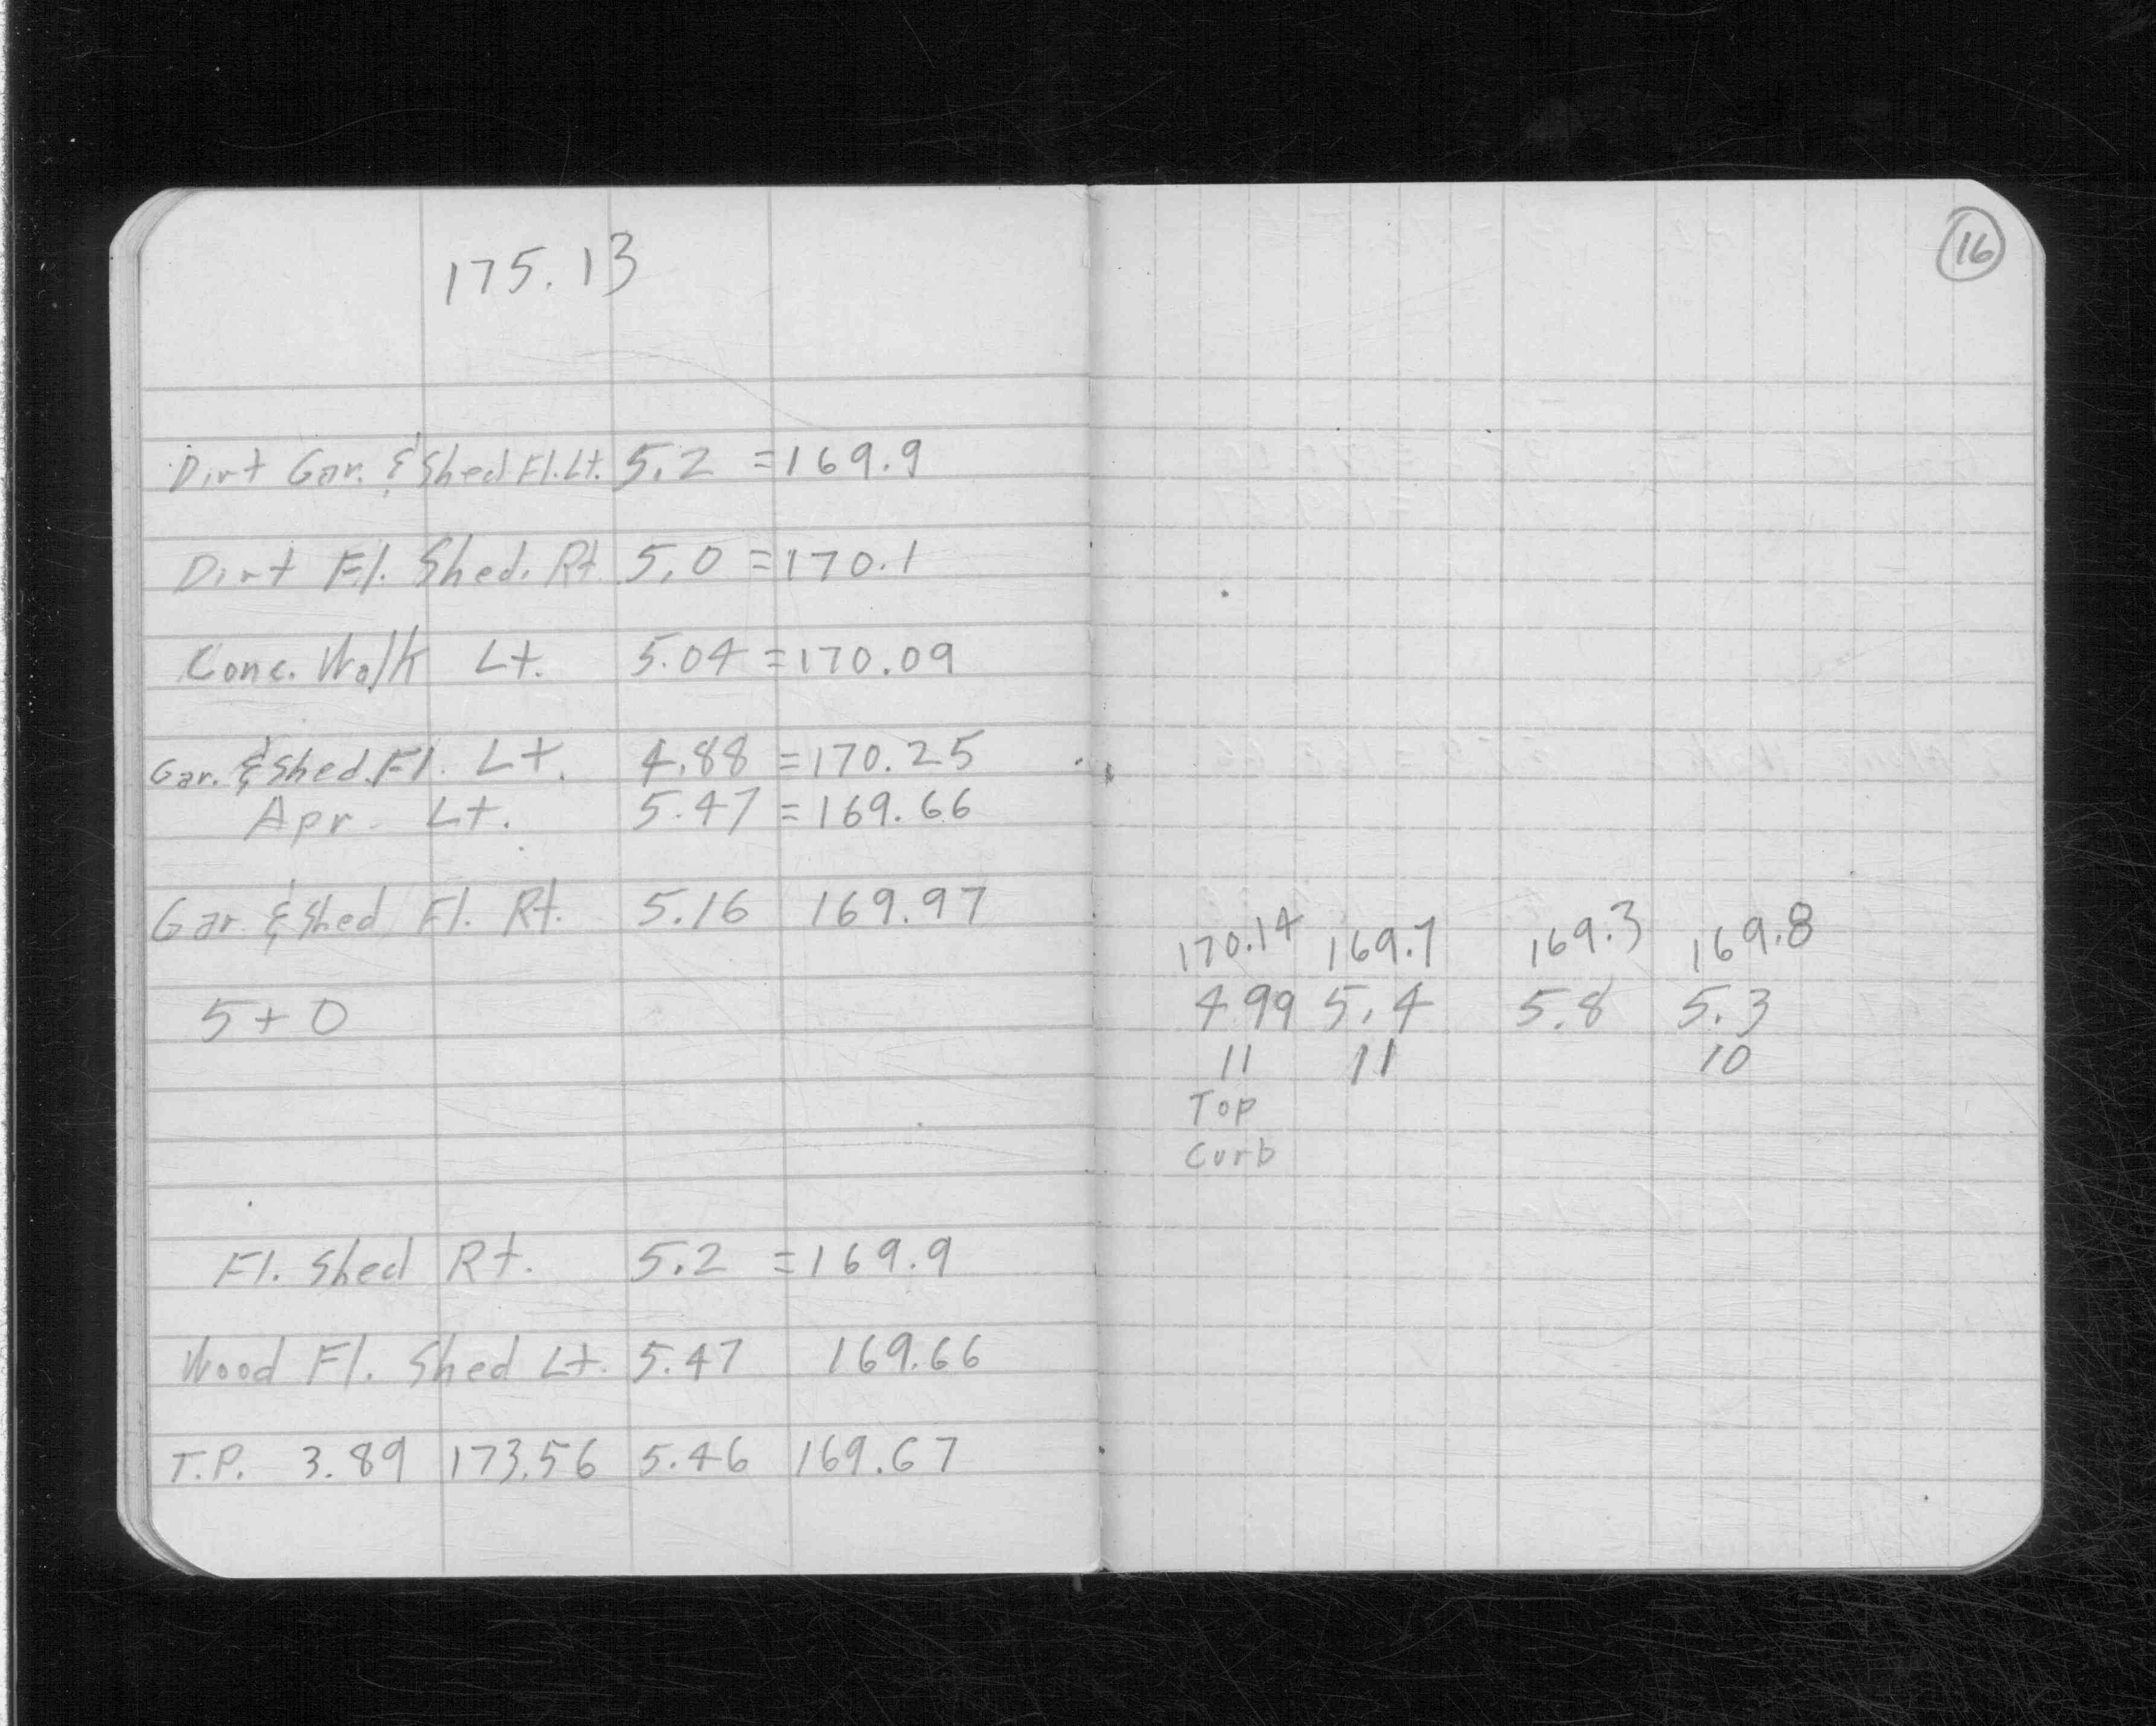 175.13
Dirt Gar. & Shed Fl. Lt. 5.2 = 169.9
Dirt Fl. Shed. Rt. 5.0 = 170.1
Conc. Walk Lt. 5.04 = 170.09
Gar. & Shed. Fl. Lt. 4.88 = 170.25
Apr. Lt. 5.47 = 169.66
Gar. & Shed Fl. Rt. 5.16 169.97
5+0
Fl. Shed Rt. 5.2 = 169.9
Wood Fl. Shed Lt. 5.47 169.66
T.P. 3.89 173.56 5.46 169.67
16
170.14 169.7 169.3 169.8
4.99 5.4 5.8 5.3
11 11 10
Top
Curb